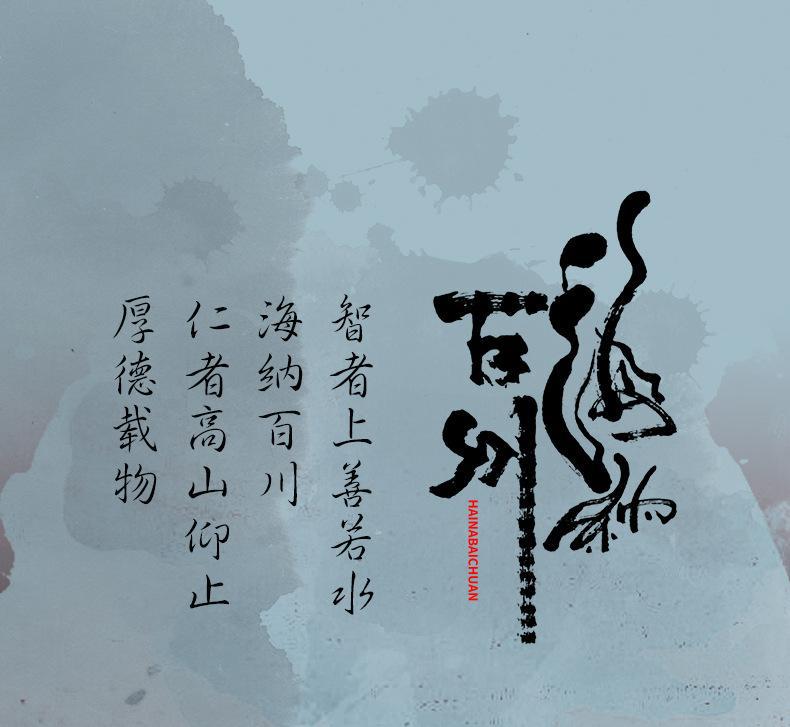 海纳
百川
HAINABAICHUAN
智者上善若水
海纳百川
仁者高山仰止
厚德载物